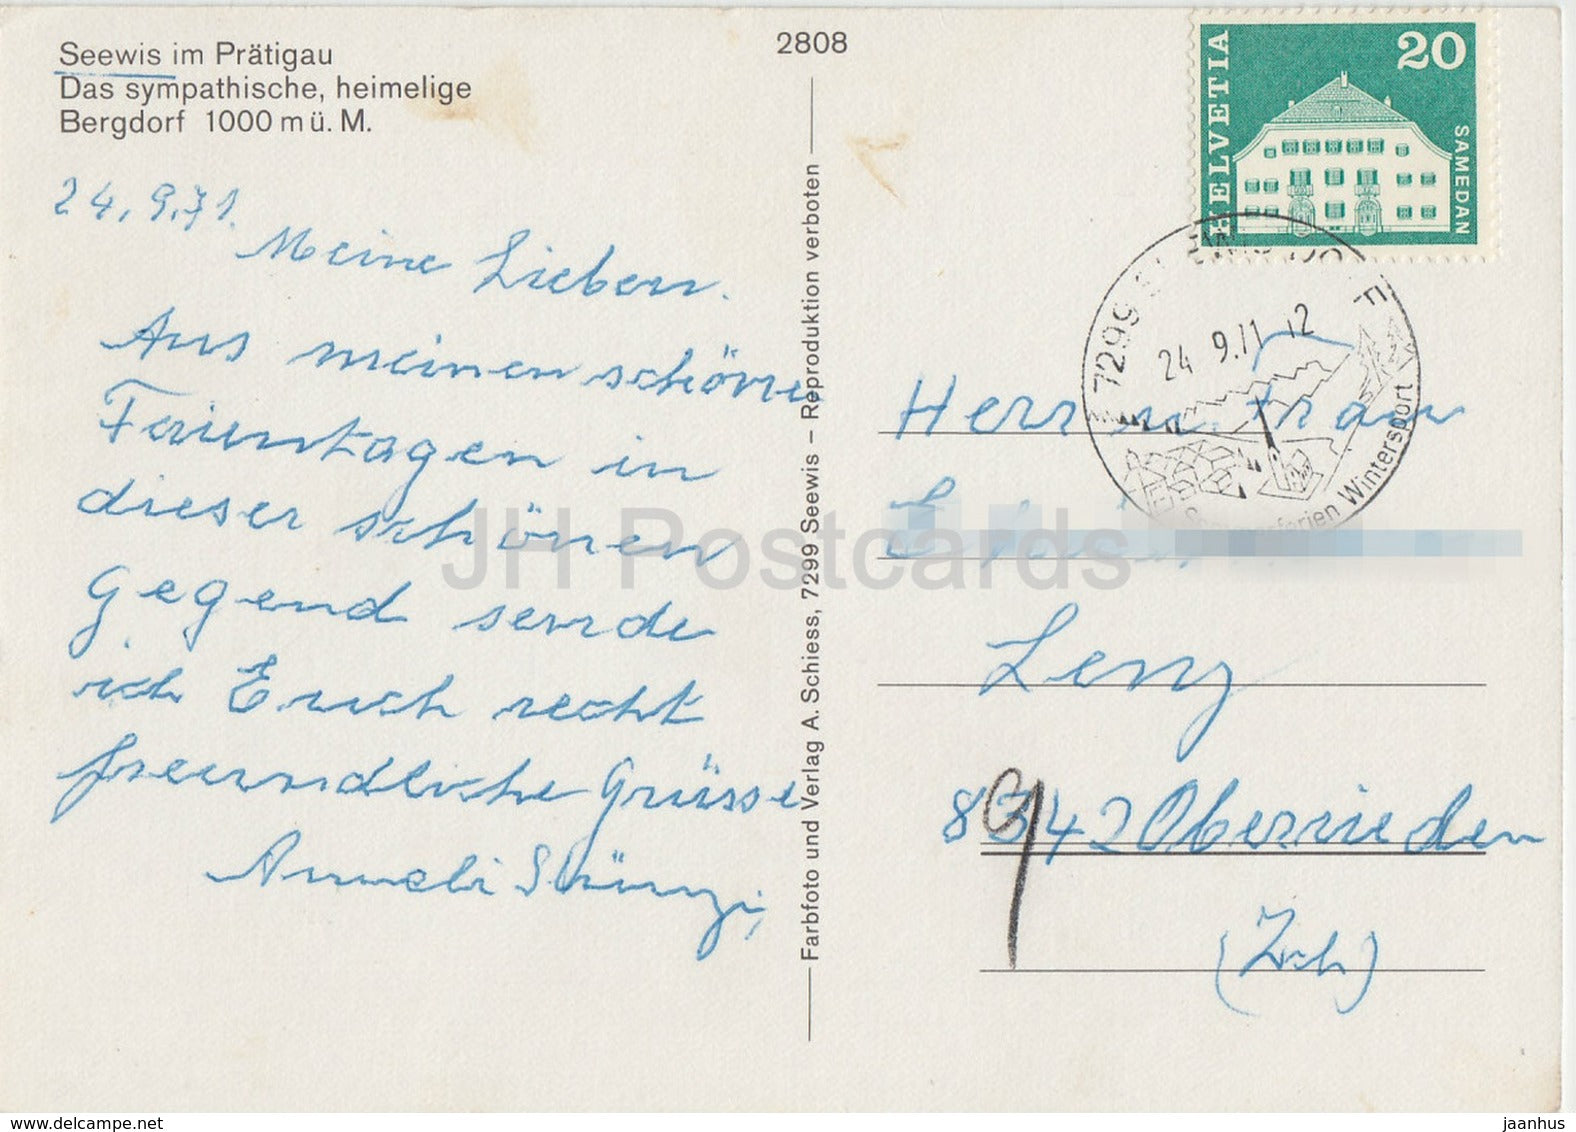 Seewis im Prätigau
Das sympathische, heimelige
Bergdorf 1000 m ü. M.
2808
HELVETIA
20
SAMEDAN
7299
24 9.71 12
Sommerferien Wintersport
24.9.71.
Meine Lieben.
Aus meinen schönen
Ferientagen in
dieser schönen
Gegend sende
ich Euch recht
freundliche Grüsse
Anneli
Farbfoto und Verlag A. Schiess, 7299 Seewis – Reproduktion verboten
Herrn u. Frau
Lenz
8942 Oberrieden
(Zch)
JH Postcards
www.delcampe.net
jaanhus